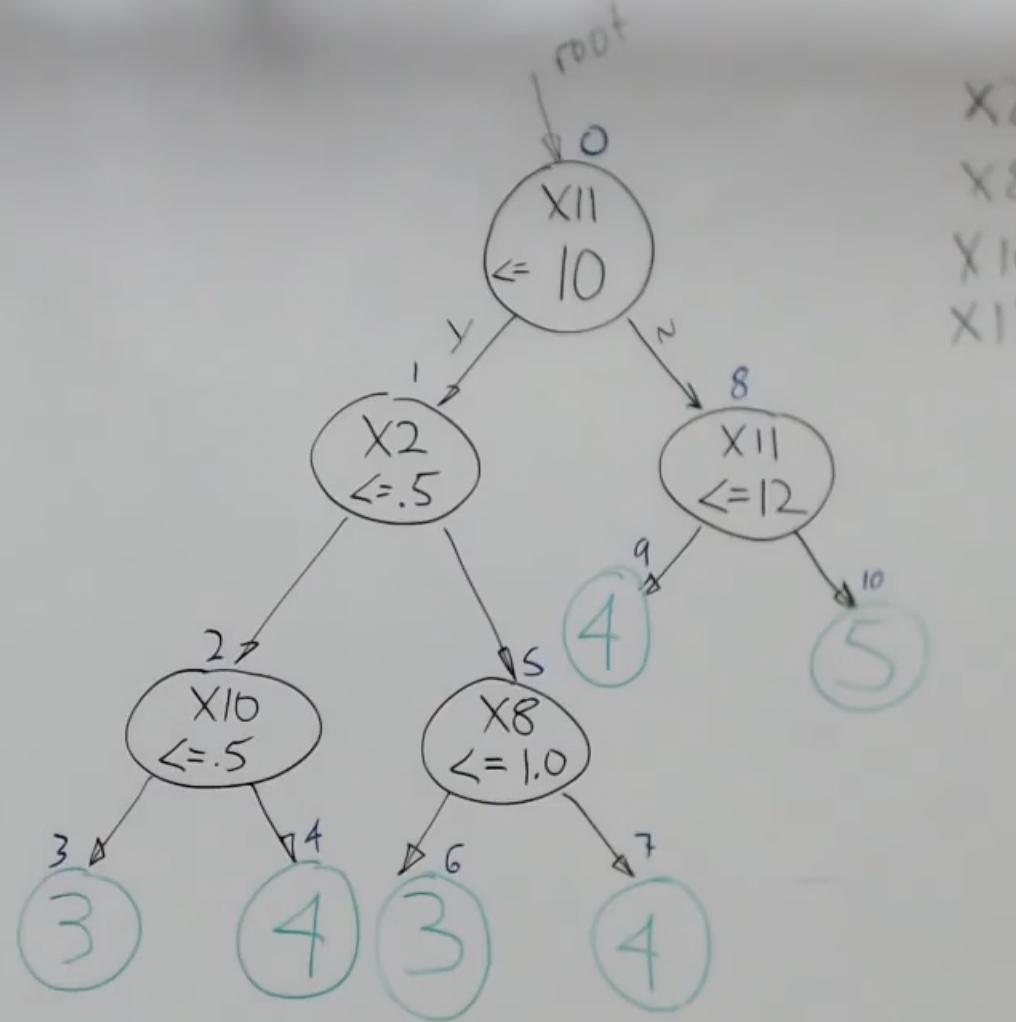 root
0
X11
<= 10
Y
N
1
X2
<=.5
8
X11
<=12
9
4
10
5
2
X10
<=.5
5
X8
<= 1.0
3
3
4
4
6
3
7
4
X2
X8
X10